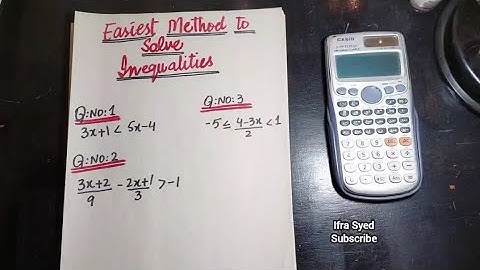 Easiest Method to
Solve
Inequalities
Q:NO:1
3x+1 < 5x-4
Q:NO:2
3x+2/9 - 2x+1/3 > -1
Q:NO:3
-5 ≤ 4-3x/2 < 1
CASIO
Ifra Syed
Subscribe